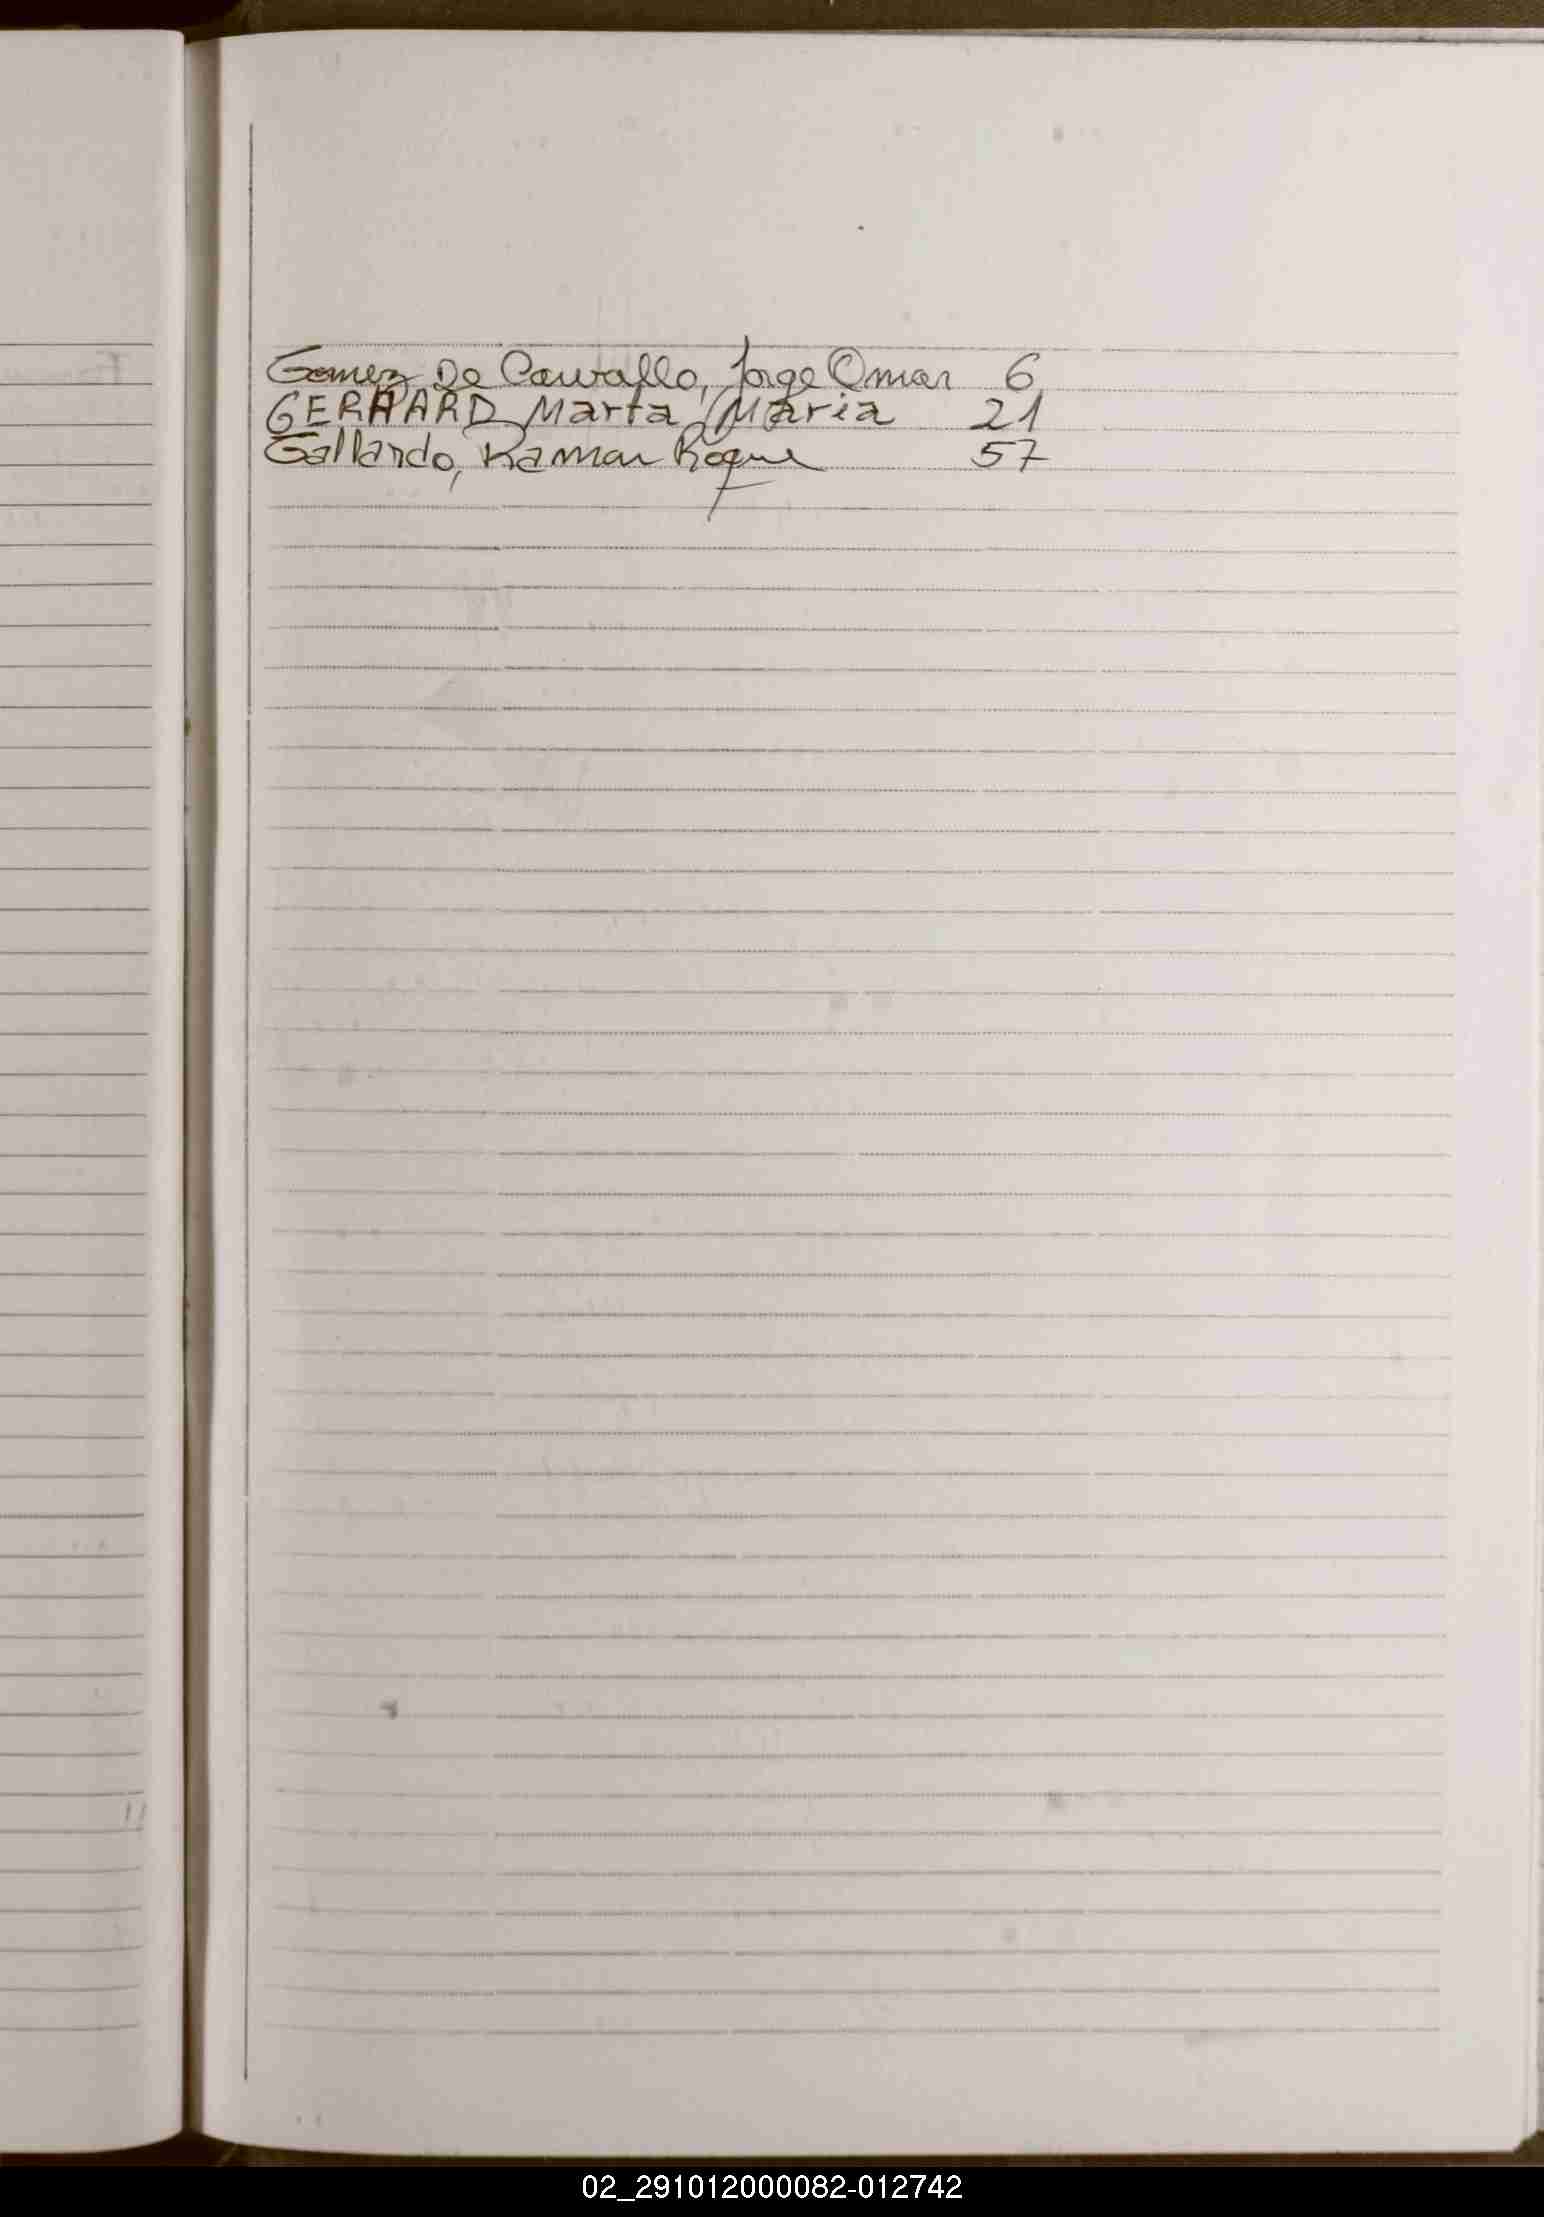 Gomez De Carvallo, Jorge Omar 6
GERHARD Marta Maria 21
Gallardo, Ramon Roque 57
02_291012000082-012742